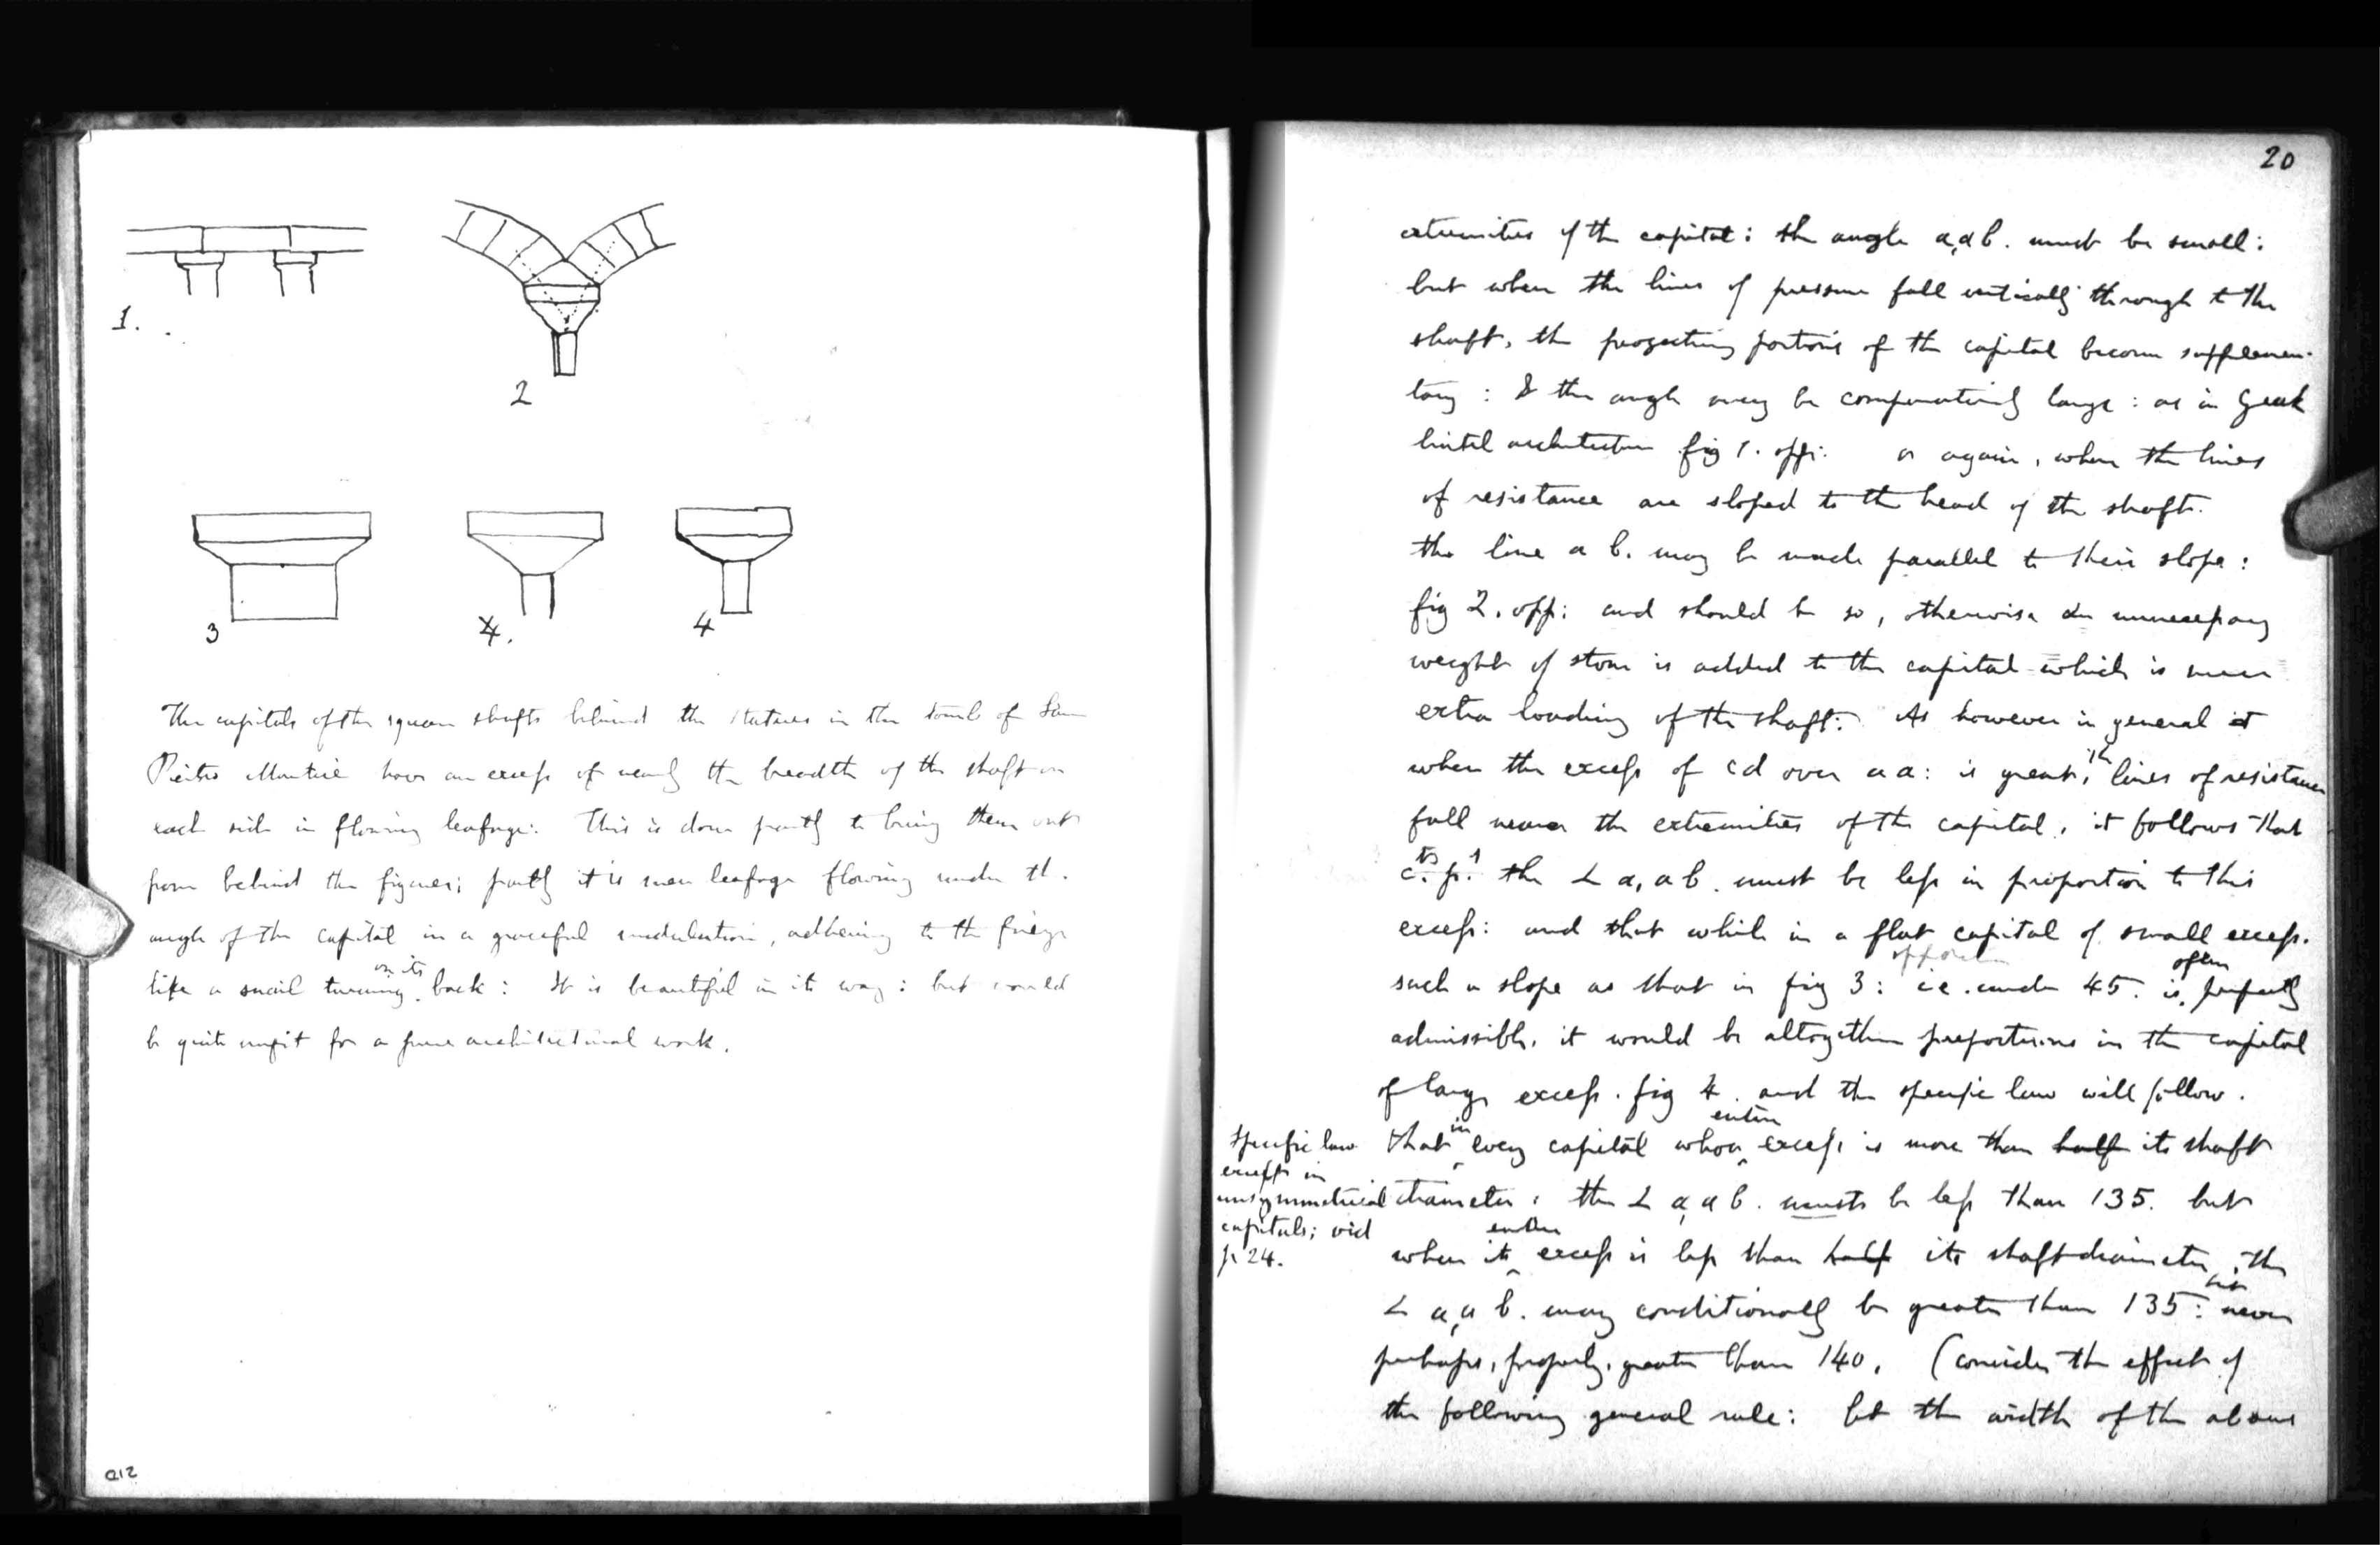 1.
2
3
4.
4
The capitals of the square shafts behind the statues in the tomb of San
Pietro have an excess of nearly the breadth of the shaft on
each side in flowing leafage: This is done partly to bring them out
from behind the figures; partly it is mere leafage flowing under the
angle of the capital in a graceful undulation, adhering to the
like a snail turning on its back: It is beautiful in its way: but would
be quite unfit for a pure architectural work.
a12
20
extremities of the capital: the angle a,a b. must be small:
but when the lines of pressure fall vertically through to the
shaft, the projecting portions of the capital become supplemen-
tary: & the angle may be comparatively large: as in Greek
lintel architecture fig 1. opp: or again, when the lines
of resistance are sloped to the head of the shaft.
the line a b. may be made parallel to their slope:
fig 2. opp: and should be so, otherwise an unnecessary
weight of stone is added to the capital which is mere
extra loading of the shaft: As however in general it
when the excess of cd over aa: is great, the lines of resistance
fall nearer the extremities of the capital, it follows that
the ∠ a, a b. must be less in proportion to this
excess: and that while in a flat capital of small excess.
such a slope as that in fig 3: i.e. under 45. is often perfectly
admissible, it would be altogether preposterous in the capital
of large excess. fig 4. and the specific law will follow.
that in every capital whose entire excess is more than half its shaft
diameter, the ∠ a, a b. must be less than 135. but
when its entire excess is less than half its shaft diameter, the
∠ a, a b. may conditionally be greater than 135: but never
perhaps, properly, greater than 140. (consider the effect of
the following general rule: let the width of the above
Specific law
except in
unsymmetrical
capitals; vid
p 24.